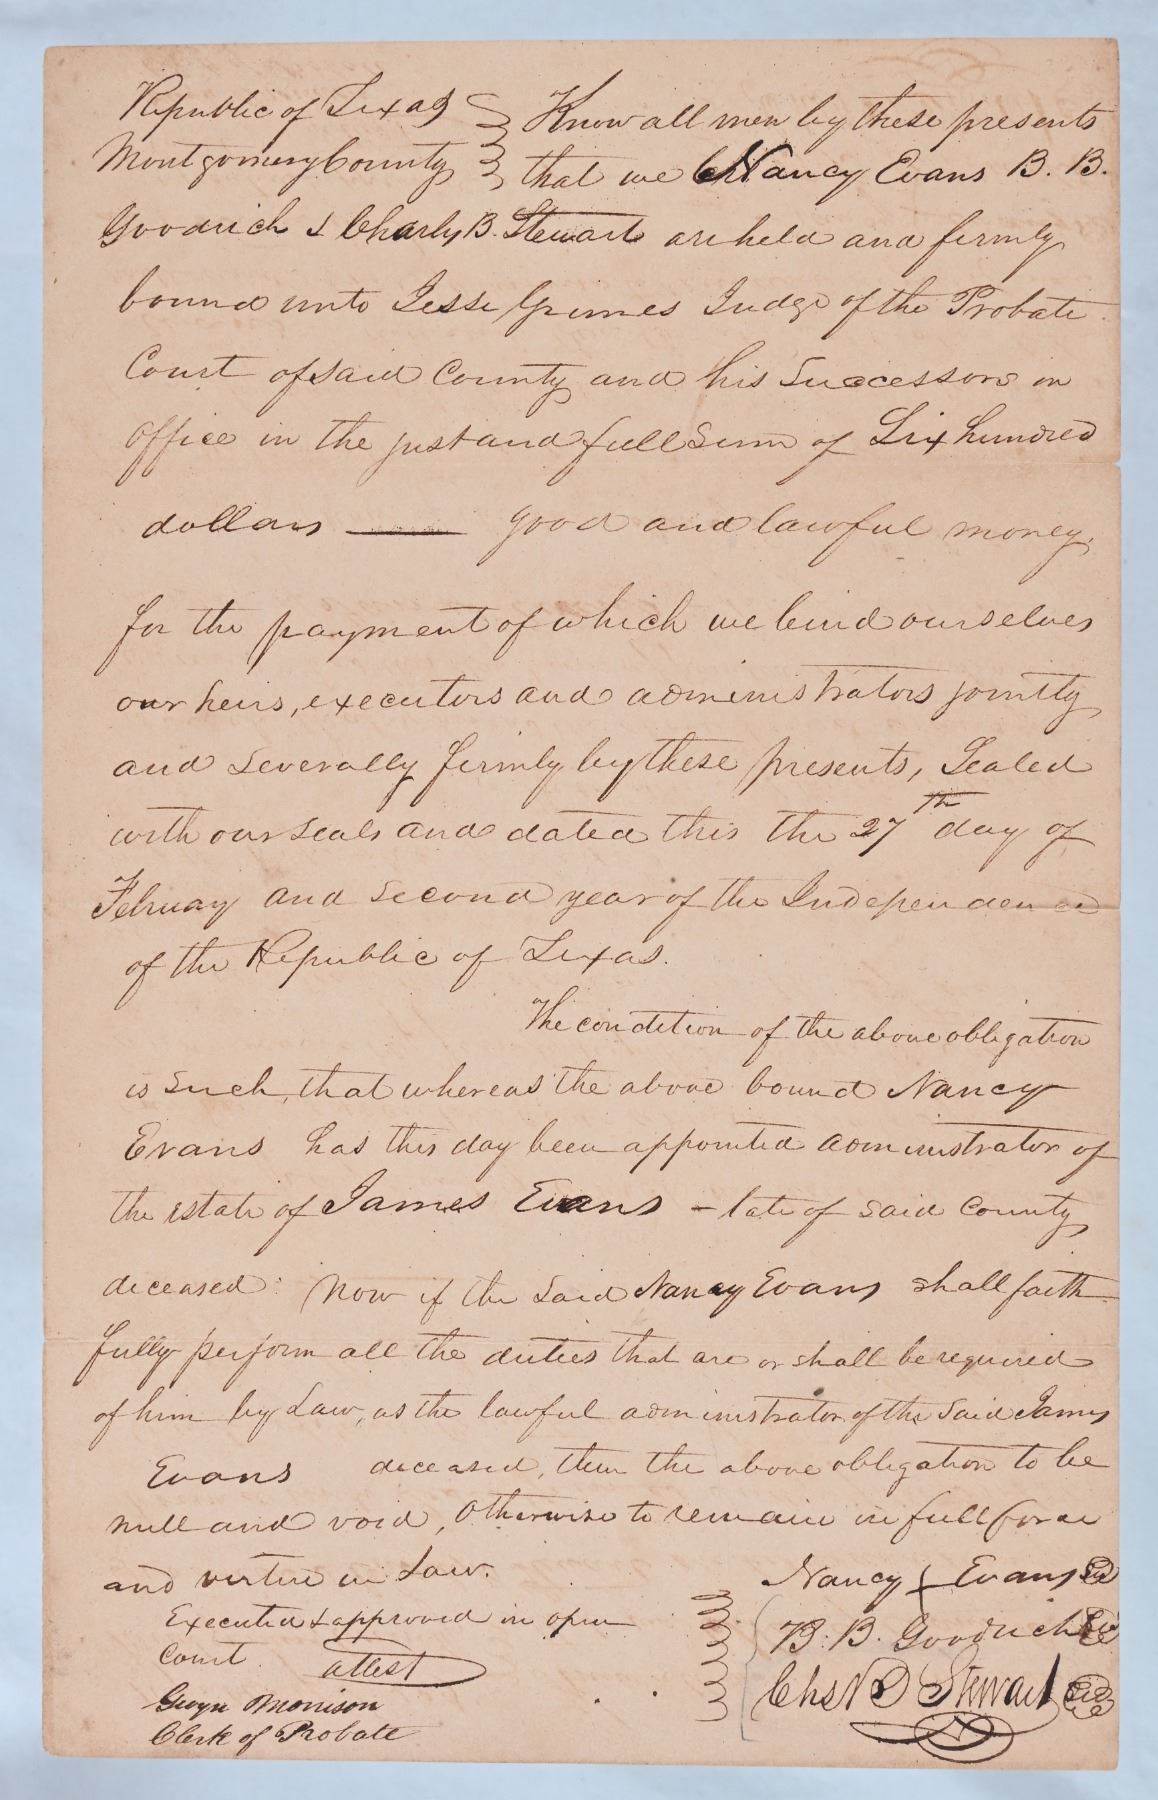 Republic of Texas
Montgomery County
Know all men by these presents
that we Nancy Evans B. B.
Goodrich & Charles B. Stewart are held and firmly
bound unto Jesse Grimes Judge of the Probate
Court of said County and his Successors in
office in the just and full sum of Six hundred
dollars — good and lawful money,
for the payment of which we bind ourselves
our heirs, executors and administrators jointly
and severally firmly by these presents, Sealed
with our seals and dated this the 27th day of
Februay and Second year of the Independence
of the Republic of Texas.
The condition of the above obligation
is Such, that whereas the above bound Nancy
Evans has this day been appointed administrator of
the estate of James Evans - late of said County
deceased: Now if the Said Nancy Evans shall faith
fully perform all the duties that are or shall be required
of him by Law, as the lawful administrator of the Said James
Evans deceased, then the above obligation to be
null and void, Otherwise to remain in full force
and virtue in Law.
Executed & approved in open
Court. attest
Gwyn Morrison
Clerk of Probate
Nancy Evans
B. B. Goodrich
Chs B Stewart